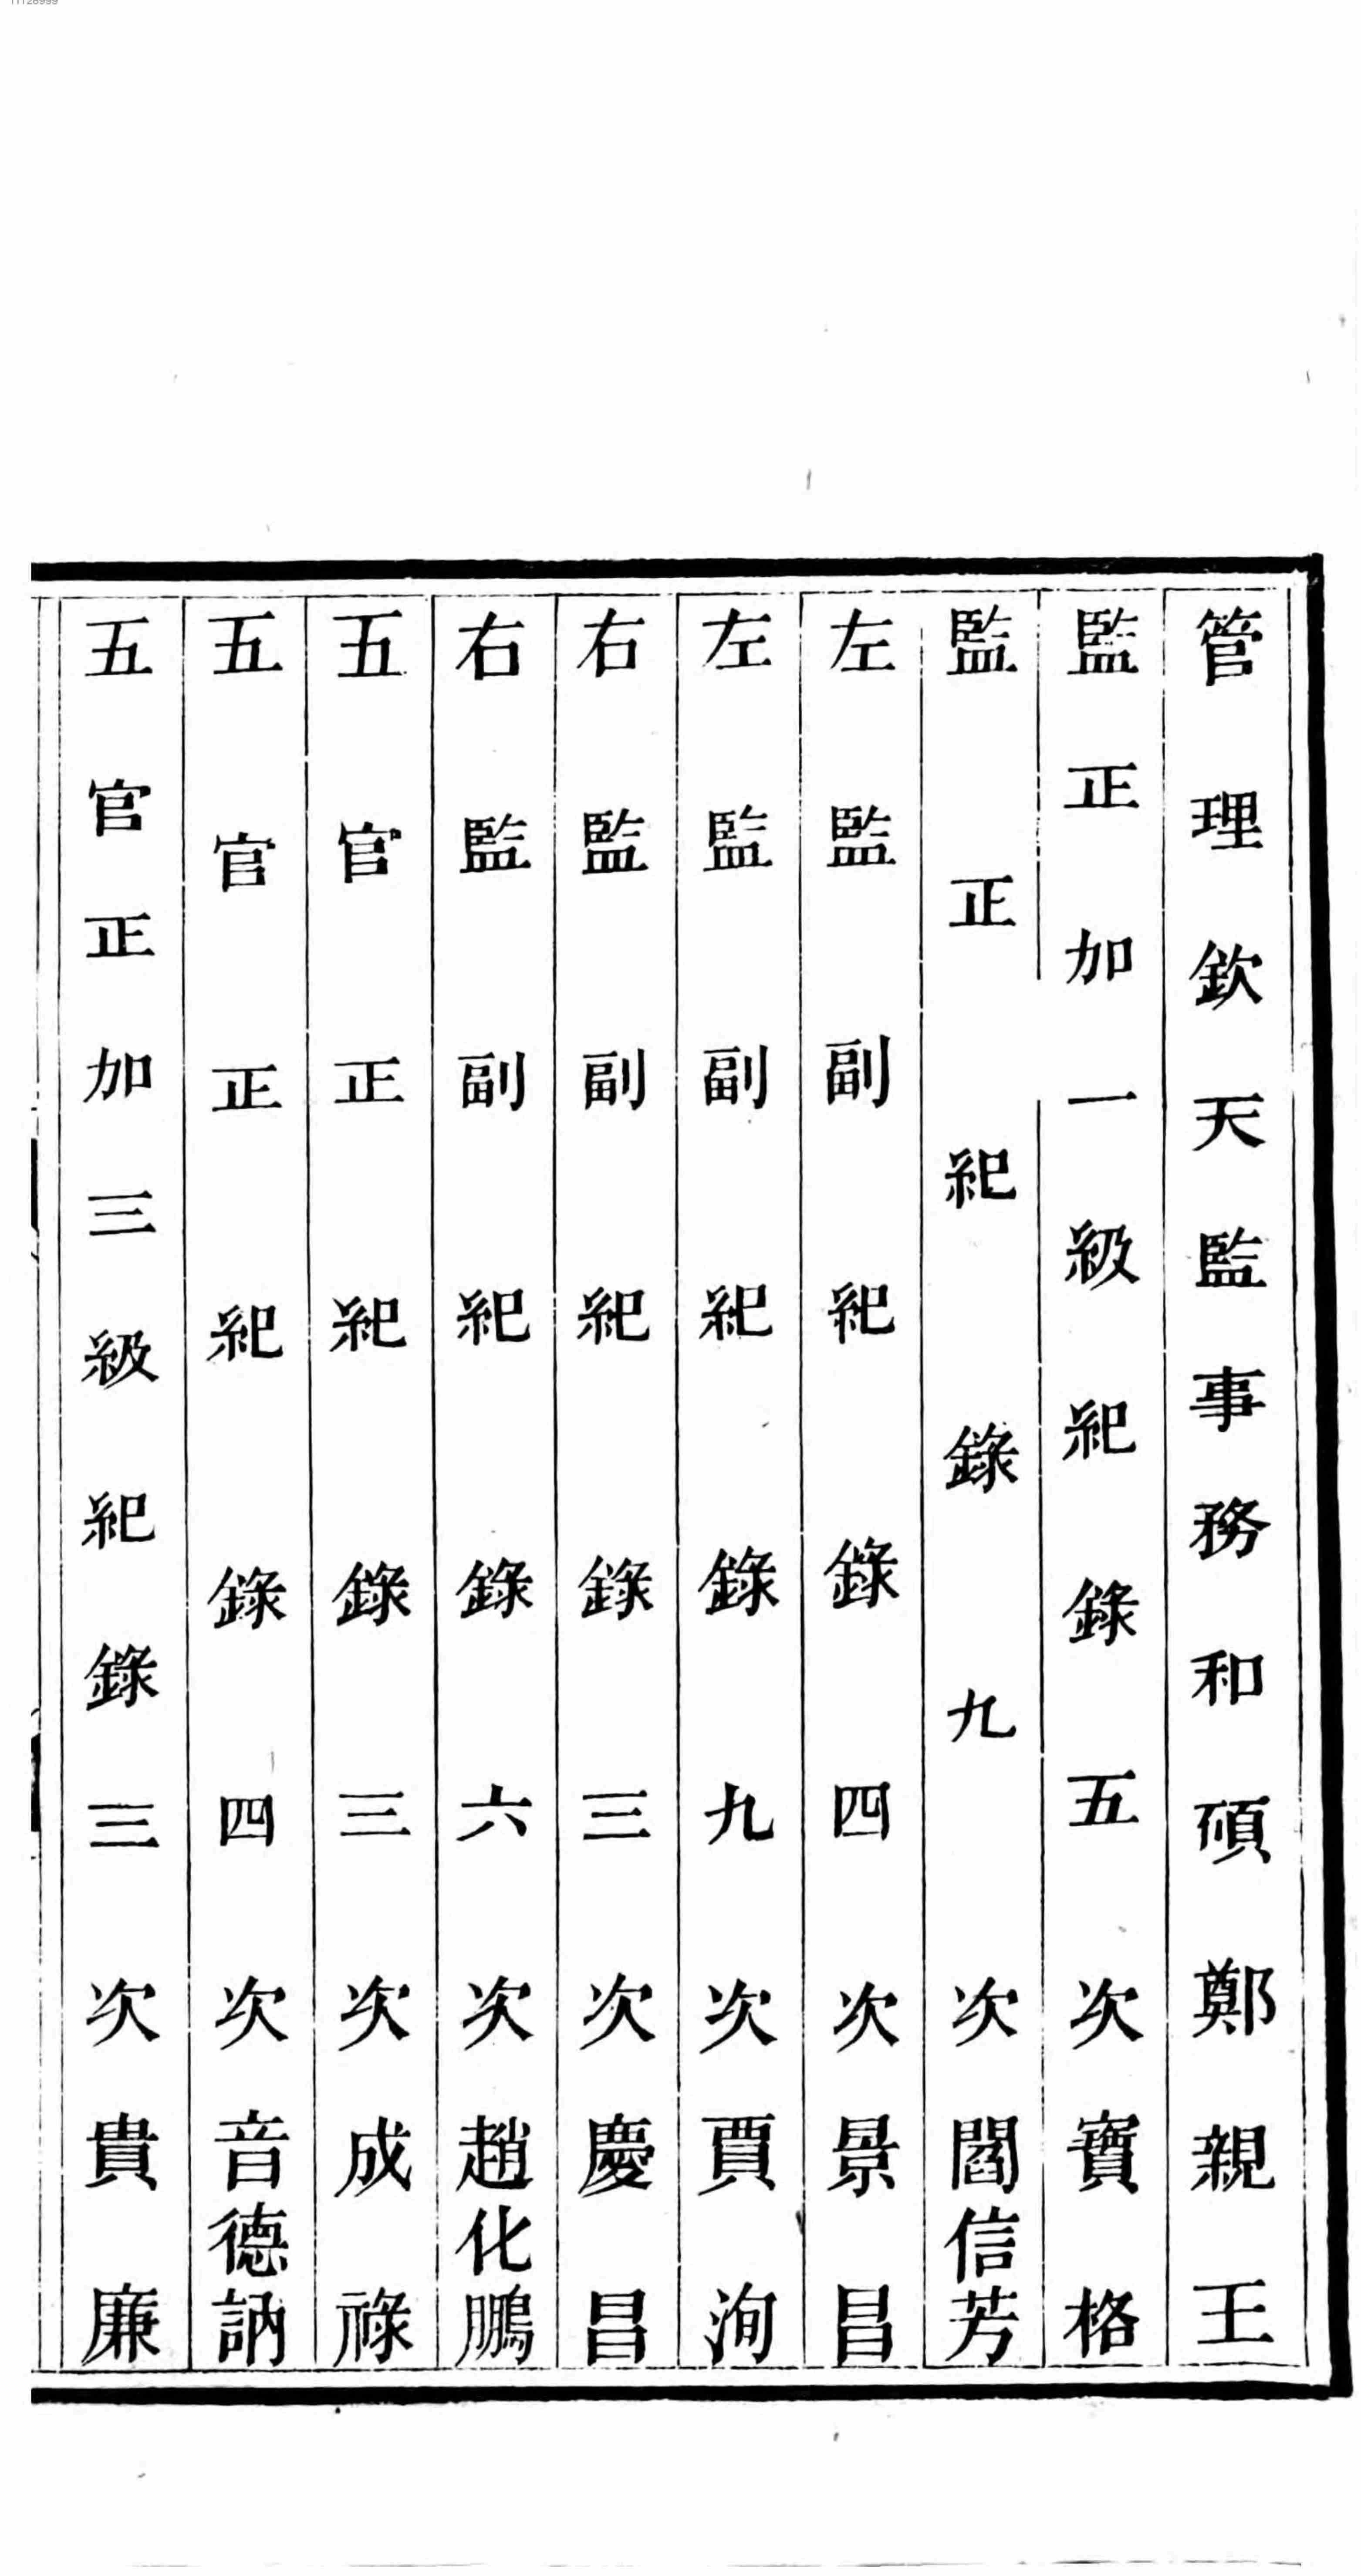 管理欽天監事務和碩鄭親王
監正加一級紀錄五次寶格
監正紀錄九次閻信芳
左監副紀錄四次景昌
左監副紀錄九次賈洵
右監副紀錄三次慶昌
右監副紀錄六次趙化鵬
五官正紀錄三次成祿
五官正紀錄四次音德訥
五官正加三級紀錄三次貴廉